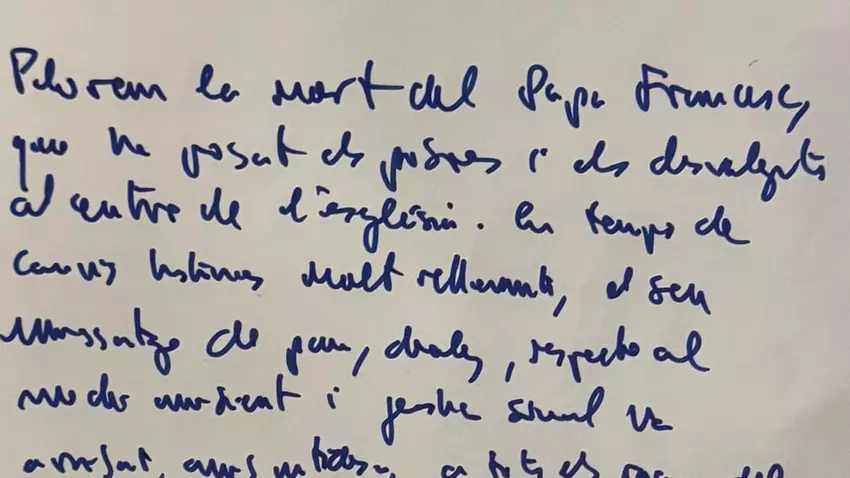 Plorem la mort del Papa Francesc,
que ha posat els pobres i els desvalguts
al centre de l'església. En temps de
canvis històrics molt rellevants, el seu
missatge de pau, diàleg, respecte al
medi ambient i justícia social va
arribar, a tots els